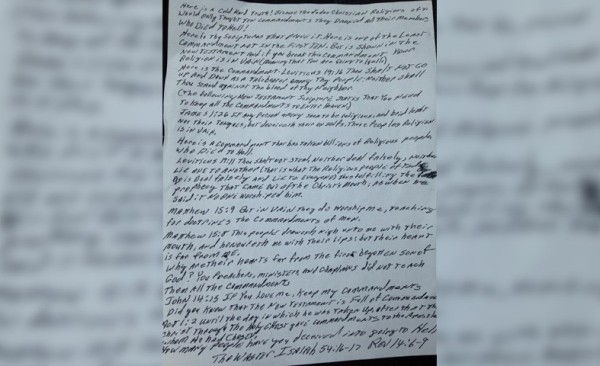 Here is a Cold Hard Truth! Because the false Christian Religions of
Would Only Taught Ten Commandments They Damned all their members
Who Died To Hell!
Here is The Scriptures That prove it. Here is one of the Least
Commandment Not in the First Ten. But is Shown in the
New Testament And if you break this Commandments Your
Religion is in Vain (meaning That You are Going To Hell)
Here is the Commandment Leviticus 19:16 Thou Shalt Not GO
up And Down as a Talebearer among Thy People: Neither shall
Thou Stand against The blood of thy Neighbor.
(The following New Testament Scripture States That You Need
To keep all the Commandments To Enter Heaven)
James 1:26 If any Among you seem to be religious, and bridleth
Not Their Tongues, but deceiveth own These Peoples Religion
is in Vain.
Here is a Command that has taken billions of Religious people
who Died To Hell.
Leviticus 19:11 Thou Shalt not Steal, Neither deal falsely, neither
Lie one to Another (That is what The Religious people of
is Deal falsely and Lie to Everyone
prophecy That Came out of the Christ's Mouth, no
Said: it worshiped him.
Matthew 15:9 But in Vain They do Worship me, Teaching
for doctrines The Commandments of men.
Matthew 15:8 This people draweth nigh unto me with their
mouth, and honoureth me with their lips: but their heart
is far from me.
Why are their hearts far from the begotten son of
God? You Preachers, ministers, and Chaplains did Not Teach
Them all The Commandments
John 14:15 If You Love me, Keep my Commandments
Did you Know That The New Testament is Full of Commandments
Act 1:2 Until the day in which he was Taken Up, after that
Through The Holy Ghost gave Commandments To the Apostles
whom He had Chosen
How many People have you deceived into going to Hell
The Waster Isaiah 54:16-17 Rev 14:6-9